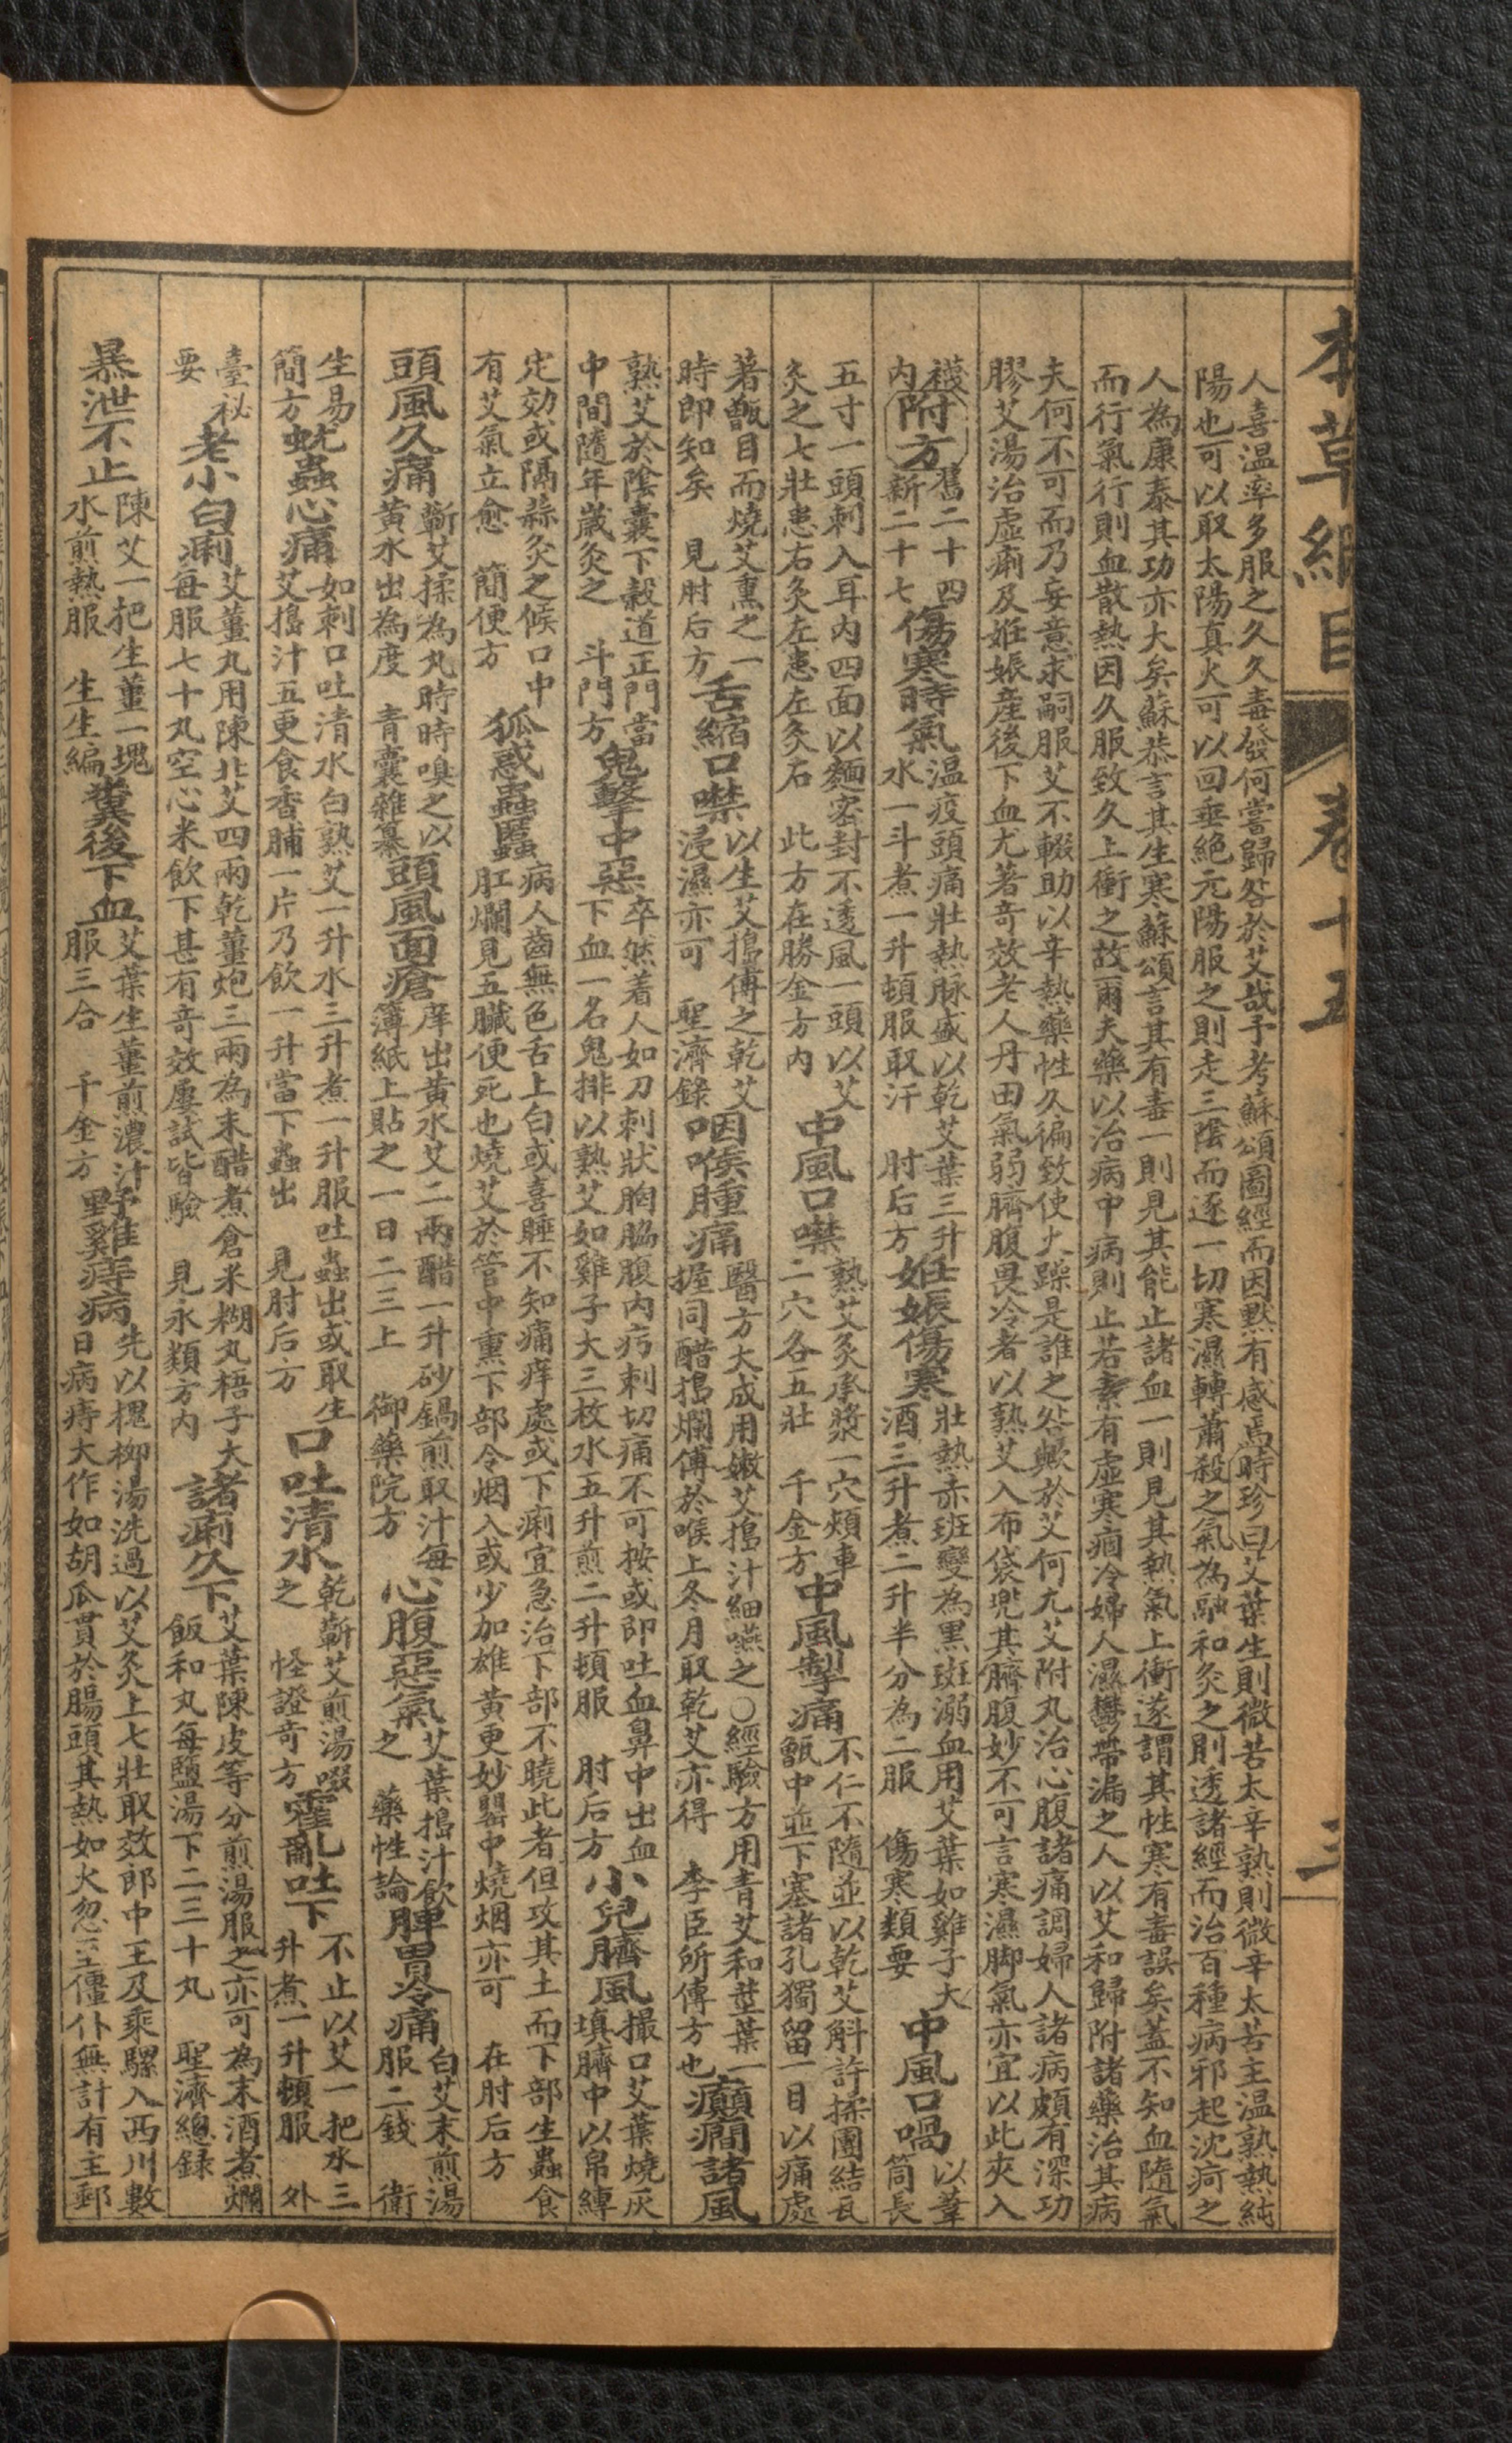 本草綱目 卷十五 三
人喜温率多服之久久毒發何嘗歸咎於艾哉予考蘇頌圖經而因默有感焉時珍曰艾葉生則微苦太辛熟則微辛太苦主温熟熱純
陽也可以取太陽真火可以回垂絕元陽服之則走三陰而逐一切寒濕轉肅殺之氣為融和灸之則透諸經而治百種病邪起沈疴之
人為康泰其功亦大矣蘇恭言其生寒蘇頌言其有毒一則見其能止諸血一則見其熱氣上衝遂謂其性寒有毒誤矣蓋不知血隨氣
而行氣行則血散熱因久服致久上衝之故爾夫藥以治病中病則止若素有虛寒痼冷婦人濕鬱帶漏之人以艾和歸附諸藥治其病
夫何不可而乃妄意求嗣服艾不輟助以辛熱藥性久偏致使火躁是誰之咎歟於艾何尤艾附丸治心腹諸痛調婦人諸病頗有深功
膠艾湯治虛痢及姙娠産後下血尤著奇效老人丹田氣弱臍腹畏冷者以熟艾入布袋兜其臍腹妙不可言寒濕脚氣亦宜以此夾入
襪
内
附方
舊二十四
新二十七
傷寒時氣
温疫頭痛壯熱脉盛以乾艾葉三升
水一斗煮一升頓服取汗 肘后方
姙娠傷寒
壯熱赤班變為黑斑溺血用艾葉如雞子大
酒三升煮二升半分為二服 傷寒類要
中風口喎
以葦
筒長
五寸一頭刺入耳内四面以麵密封不透風一頭以艾
灸之七壯患右灸左患左灸右 此方在勝金方内
中風口噤
熟艾灸承漿一穴頰車
二穴各五壯 千金方
中風掣痛
不仁不隨並以乾艾斛許揉團結瓦
甑中並下塞諸孔獨留一目以痛處
著甑目而燒艾熏之一
時即知矣 見肘后方
舌縮口噤
以生艾搗傅之乾艾
浸濕亦可 聖濟錄
咽喉腫痛
醫方大成用嫩艾搗汁細嚥之○經驗方用青艾和莖葉一
握同醋搗爛傅於喉上冬月取乾艾亦得 李臣所傅方也
癲癇諸風
熟艾於陰囊下穀道正門當
中間隨年歲灸之 斗門方
鬼擊中惡
卒然着人如刀刺狀胸脇腹内㽲刺切痛不可按或即吐血鼻中出血
下血一名鬼排以熟艾如雞子大三枚水五升煎二升頓服 肘后方
小兒臍風
撮口艾葉燒灰
填臍中以帛縛
定効或隔蒜灸之候口中
有艾氣立愈 簡便方
狐惑蟲䘌
病人齒無色舌上白或喜睡不知痛痒處或下痢宜急治下部不曉此者但攻其土而下部生蟲食
肛爛見五臟便死也燒艾於管中熏下部令烟入或少加雄黃更妙罌中燒烟亦可 在肘后方
頭風久痛
蘄艾揉為丸時時嗅之以
黃水出為度 青囊雜纂
頭風面瘡
痒出黃水艾二兩醋一升砂鍋煎取汁每
簿紙上貼之一日二三上 御藥院方
心腹惡氣
艾葉搗汁飲
之 藥性論
脾胃冷痛
白艾末煎湯
服二錢 衛
生易
簡方
蚘蟲心痛
如刺口吐清水白熟艾一升水三升煮一升服吐蟲出或取生
艾搗汁五更食香脯一片乃飲一升當下蟲出 見肘后方
口吐清水
乾蘄艾煎湯啜
之 怪證奇方
霍亂吐下
不止以艾一把水三
升煮一升頓服 外
臺祕
要
老小白痢
艾薑丸用陳北艾四兩乾薑炮三兩為末醋煮倉米糊丸梧子大
每服七十丸空心米飲下甚有奇效屢試皆驗 見永類方内
諸痢久下
艾葉陳皮等分煎湯服之亦可為末酒煮爛
飯和丸每鹽湯下二三十丸 聖濟總錄
暴泄不止
陳艾一把生薑一塊
水煎熱服 生生編
糞後下血
艾葉生薑煎濃汁
服三合 千金方
野雞痔病
先以槐柳湯洗過以艾灸上七壯取效郎中王及乘騾入西川數
日病痔大作如胡瓜貫於腸頭其熱如火忽至僵仆無計有主郵